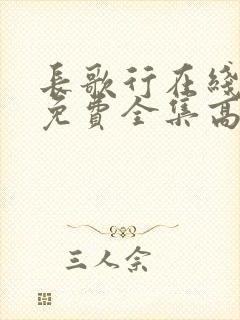 長歌行在綫
免費全集高
三人余